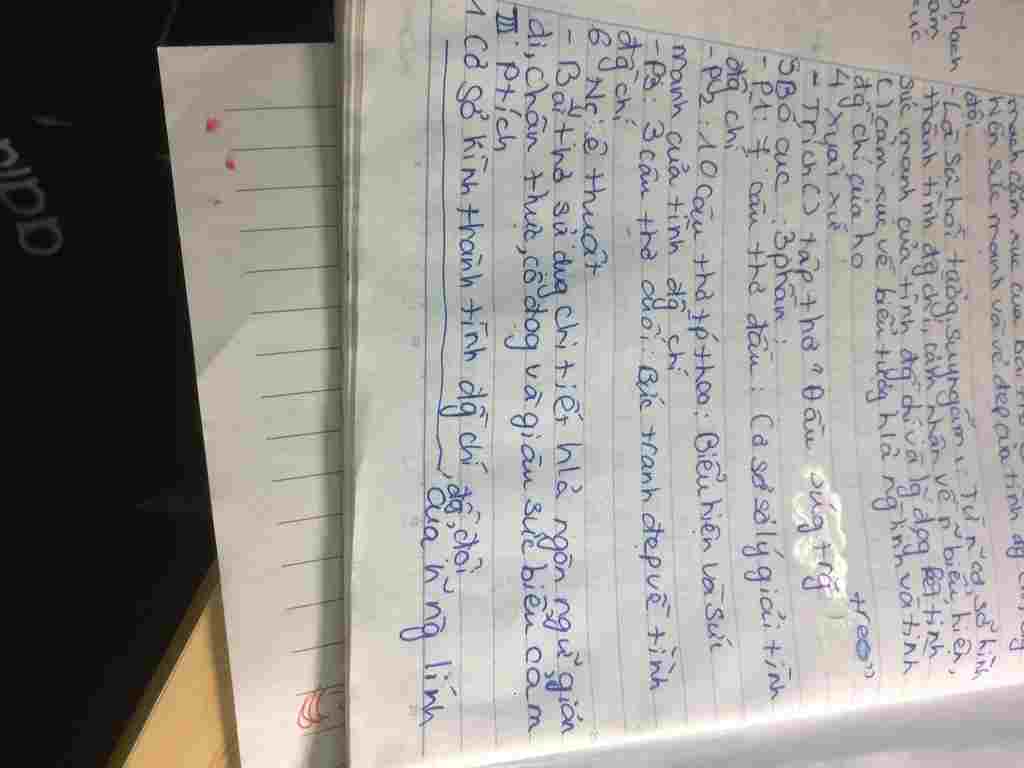 3 Mạch
cảm
xúc
mạch cảm xúc của bài thơ
đến sức mạnh và vẻ đẹp của tình đg
đó.
- Là sự hồi tưởng, suy ngẫm: Từ n~ cơ sở hình
thành tình đg đội, cảnh nhân về n~ biểu hiện,
sức mạnh của tình đg chí và lg đọg tình
() cảm xúc về biểu tượg h/ả ng lính và tình
đg chí của họ
4 xuất xứ
- Trích () tập thơ "Đầu súg trg
treo"
5 Bố cục: 3 phần
- P1: 7 câu thơ đầu: Cơ sở lý giải tình
đg chí
- P2: 10 câu thơ tp theo: Biểu hiện và sức
mạnh của tình đg chí
- P3: 3 câu thơ cuối: Bức tranh đẹp về tình
đg chí
6 Ng: ệ thuật
- Bài thơ sử dụg chi tiết h/ả ngôn ngữ giản
dị, chân thực, cô đọg và giàu sức biểu cảm
III: P tích
1 Cơ sở hình thành tình đg chí, đg đội
của n~ ng lính